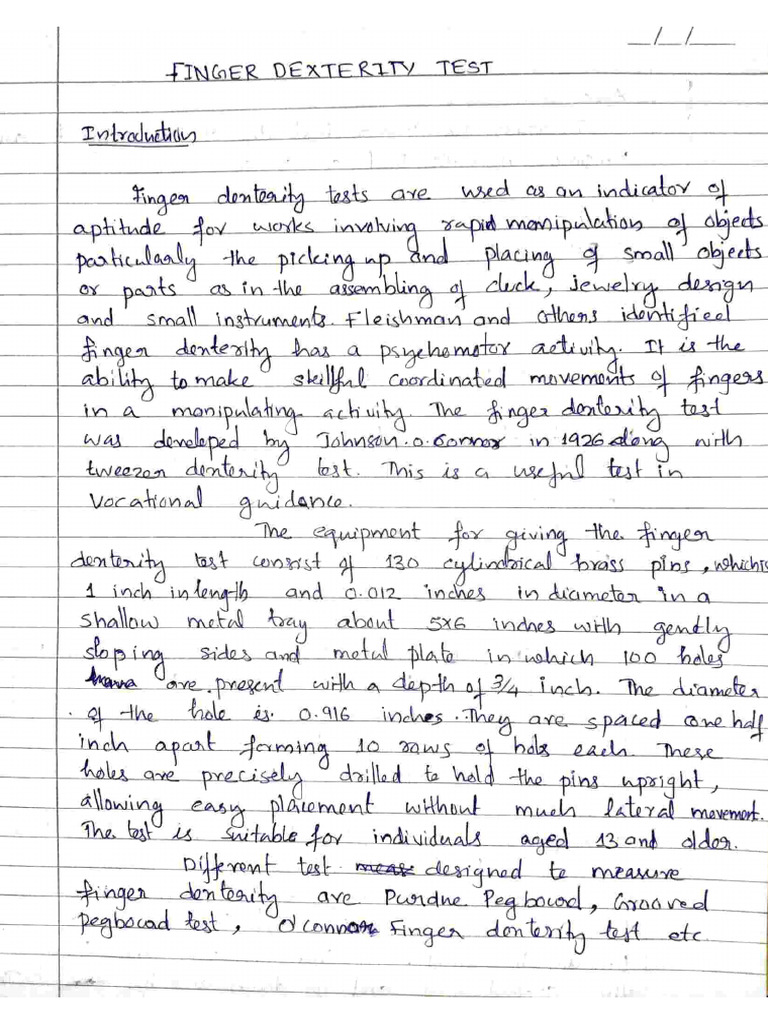 __/__/____
FINGER DEXTERITY TEST
Introduction
Finger denterity tests are used as an indicator of
aptitude for works involving rapid manipulation of objects
particularly the picking up and placing of small objects
or parts as in the assembling of clock, jewelry design
and small instruments. Fleishman and others identified
finger denterity has a psychomotor activity. It is the
ability to make skillful coordinated movements of fingers
in a manipulating activity. The finger denterity test
was developed by Johnson.O.Connor in 1926 along with
tweezer denterity test. This is a useful test in
vocational guidance.
The equipment for giving the finger
denterity test consist of 130 cylindrical brass pins, which is
1 inch in length and 0.012 inches in diameter in a
shallow metal tray about 5x6 inches with gently
sloping sides and metal plate in which 100 holes
are present with a depth of 3/4 inch. The diameter
of the hole is 0.916 inches. They are spaced one half
inch apart forming 10 rows of hols each. These
holes are precisely drilled to hold the pins upright,
allowing easy placement without much lateral movement.
The test is suitable for individuals aged 13 and older.
Different test designed to measure
finger denterity are Purdue Pegboard, Grooved
pegboard test, O'Connor Finger denterity test etc